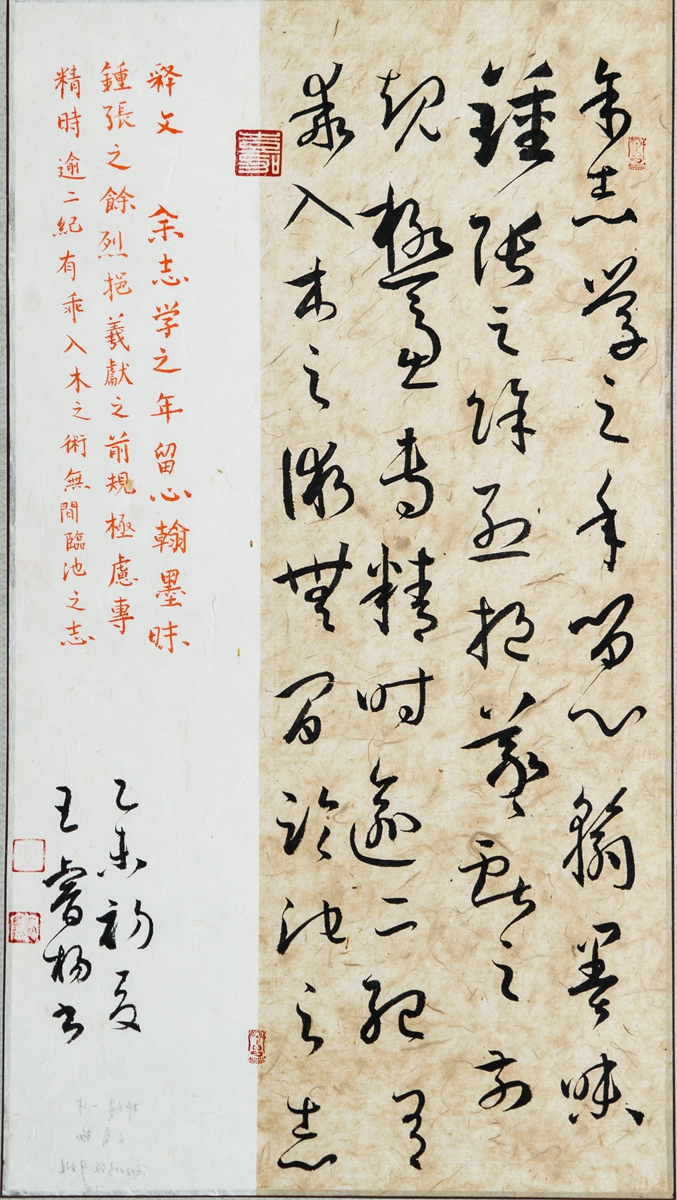 余志学之年留心翰墨味
鍾張之餘烈挹羲獻之前
規極慮专精时逾二紀有
乖入木之術無间临池之志
释文 余志学之年留心翰墨昧
鍾張之餘烈挹羲獻之前規極慮專
精時逾二紀有乖入木之術無間臨池之志
乙未初夏
王睿杨书